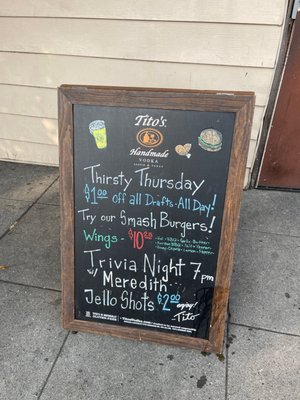 Tito's
Handmade
VODKA
AUSTIN ★ TEXAS
Thirsty Thursday
$1.00 off all Drafts - All Day!
Try our Smash Burgers!
Wings - $10.00
Trivia Night 7pm
w/ Meredith
Jello Shots $2.00
enjoy!
Tito